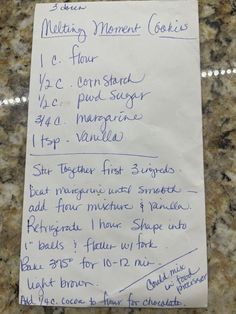 3 dozen
Melting Moment Cookies
1 c. flour
1/2 c. cornstarch
1/2 c. pwd sugar
3/4 c. margarine
1 tsp. vanilla
Stir together first 3 ingreds.
beat margarine until smooth -
add flour mixture & vanilla.
Refrigerate 1 hour. Shape into
1" balls & flatten w/ fork.
Bake 375° for 10-12 min.
light brown.
Could mix
in food
processor
Add 1/4 c. cocoa to flour for chocolate.